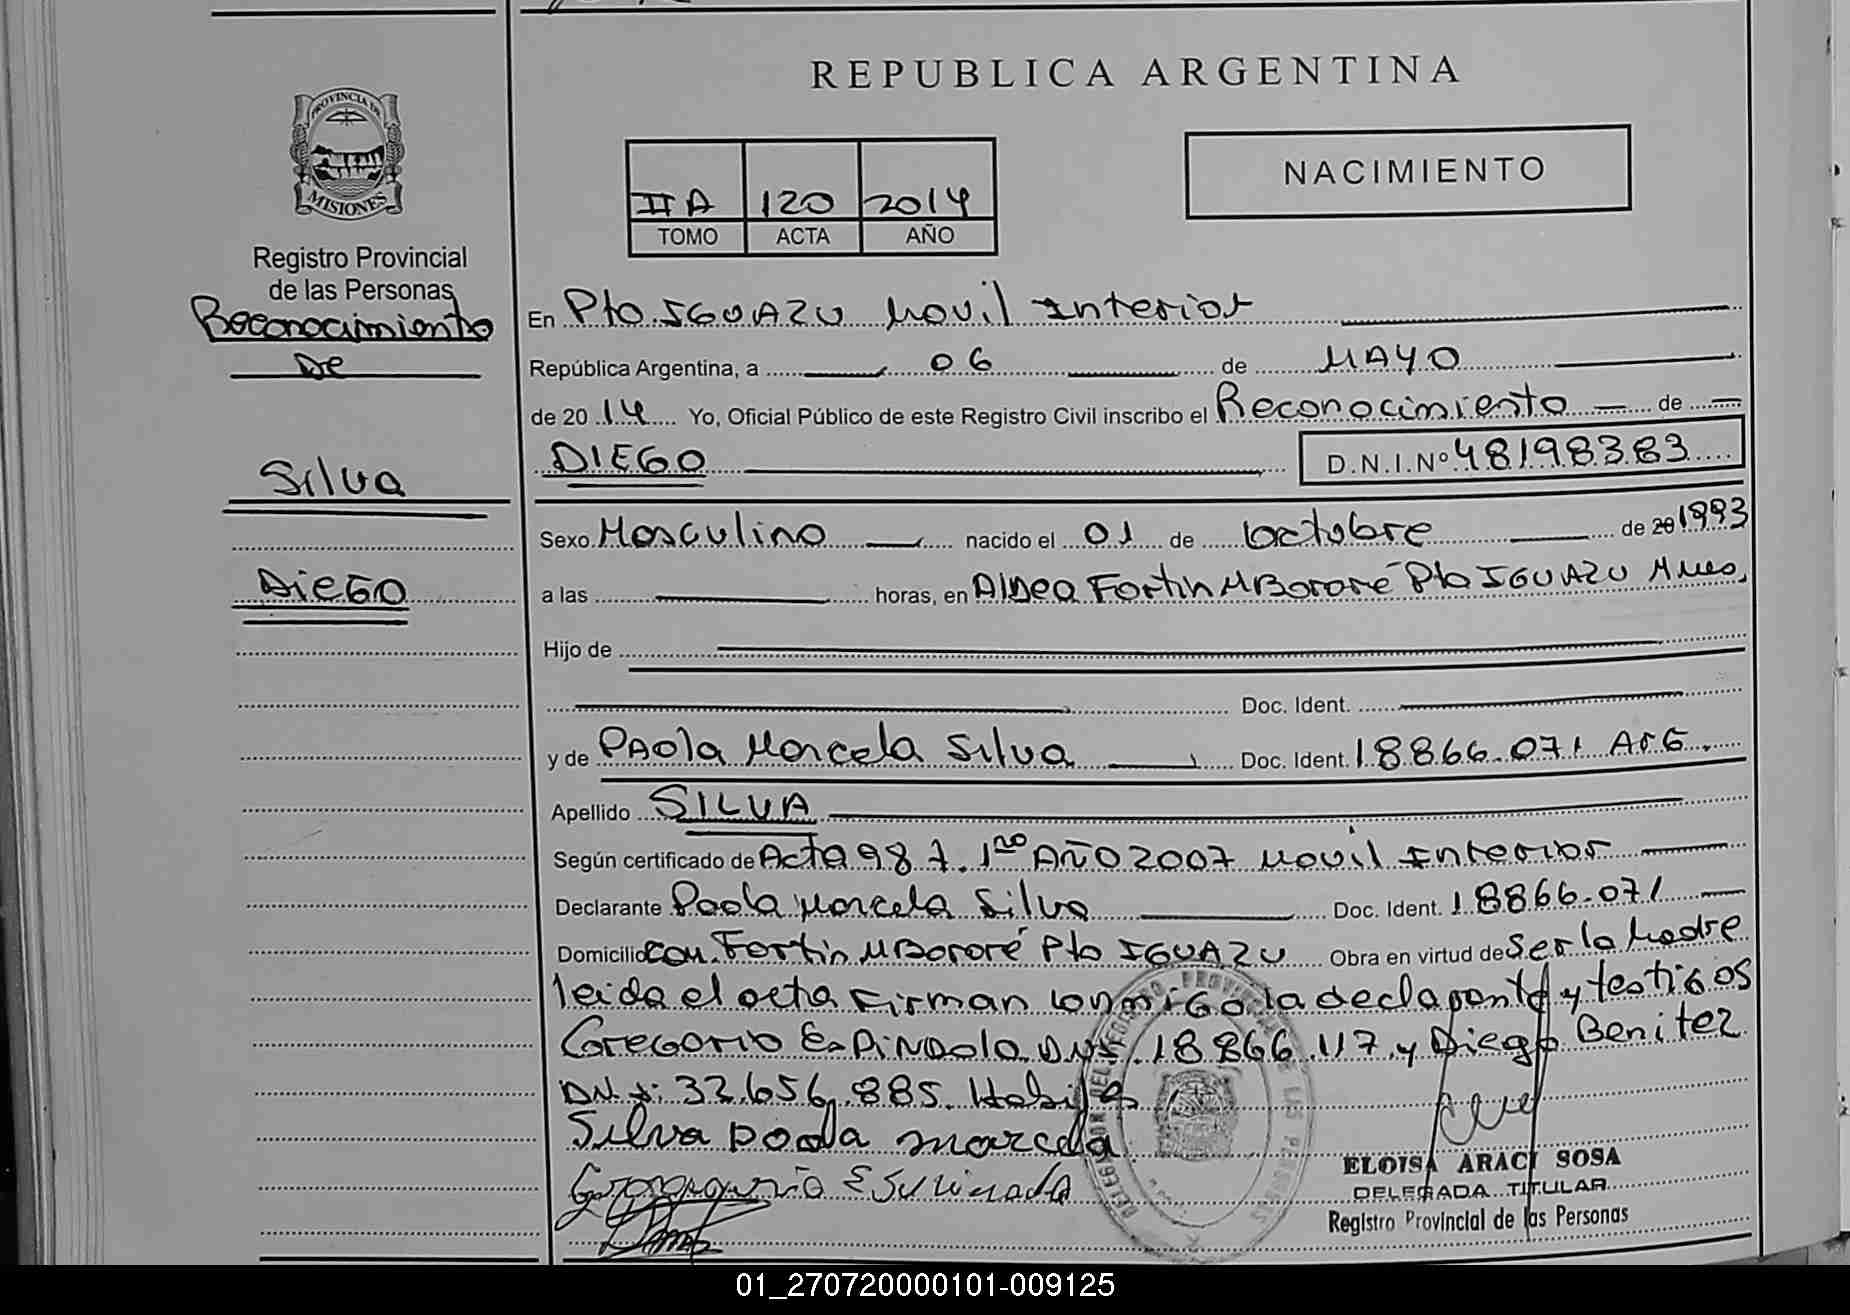 REPUBLICA ARGENTINA
PROVINCIA DE
MISIONES
Registro Provincial
de las Personas
Reconocimiento
De
Silva
Diego
IIA 120 2014
TOMO ACTA AÑO
NACIMIENTO
En Pto IGUAZU Movil Interior
República Argentina, a 06 de MAYO
de 2014 Yo, Oficial Público de este Registro Civil inscribo el Reconocimiento de
DIEGO D.N.I.Nº 48198383
Sexo Masculino nacido el 01 de octubre de 20 1993
a las horas, en Aldea Fortin MBororé Pto IGUAZU Mnes,
Hijo de
Doc. Ident.
y de PAola Marcela Silva Doc. Ident. 18866.071 ArG.
Apellido SILVA
Según certificado de Acta 98 7. 1ro AÑO 2007 Movil Interior
Declarante Paola Marcela Silva Doc. Ident. 18866.071
Domicilio Com. Fortin MBororé Pto IGUAZU Obra en virtud de Ser la Madre
leida el acta Firman conmiGo la declarante y testigos
GreGorio EspiNDola DNI. 18866.117 y Diego Benitez
DNI: 32.656.885. Habiles
Silva paola marcela
ELOISA ARACI SOSA
DELEGADA TITULAR
Registro Provincial de las Personas
01_270720000101-009125